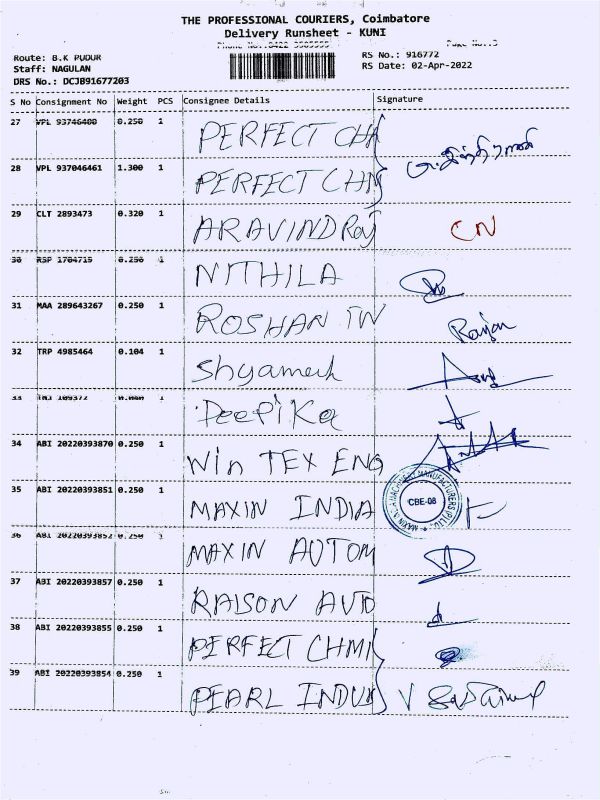 THE PROFESSIONAL COURIERS, Coimbatore
Delivery Runsheet - KUNI
Route: B.K PUDUR
Staff: NAGULAN
DRS No.: DCJB91677203
RS No.: 916772
RS Date: 02-Apr-2022
S No Consignment No Weight PCS Consignee Details Signature
27 VPL 93746400 0.250 1 PERFECT CHA
28 VPL 937046461 1.300 1 PERFECT CHM
29 CLT 2893473 0.320 1 ARAVIND Raj CN
30 RSP 1784715 0.250 1 NITHILA
31 MAA 289643267 0.250 1 ROSHAN TW Ranjan
32 TRP 4985464 0.104 1 Shyamech
33 1 Deepika
34 ABI 20220393870 0.250 1 Win TEX ENG
35 ABI 20220393851 0.250 1 MAXIN INDIA CBE-08
36 ABI 20220393852 0.250 1 MAXIN AUTOM
37 ABI 20220393857 0.250 1 RAISON AUTO
38 ABI 20220393855 0.250 1 PERFECT CHMI
39 ABI 20220393854 0.250 1 PEARL INDUS